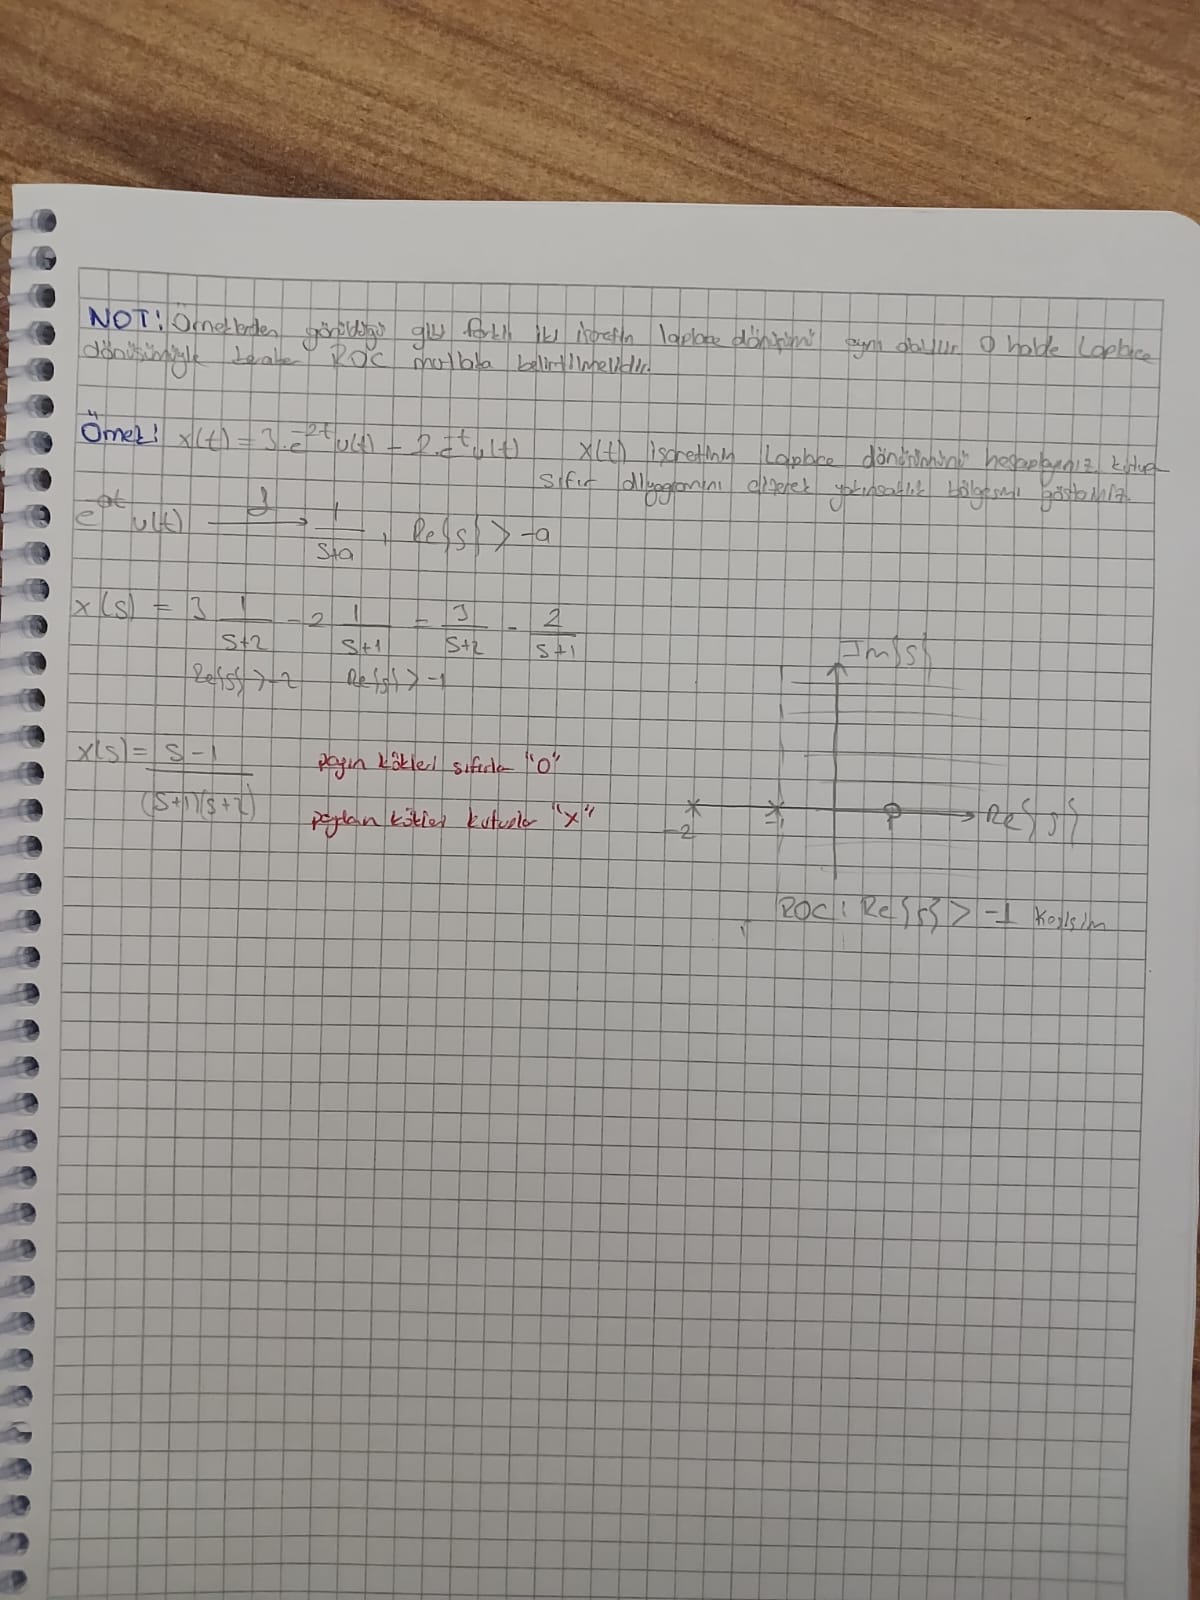 NOT: Örneklerden görüldüğü gibi farklı iki işaretin laplace dönüşümü aynı olabilir. O halde Laplace
dönüşümüyle beraber ROC mutlaka belirtilmelidir.
Örnek: x(t) = 3.e^-2t u(t) - 2.e^-t u(t) x(t) işaretinin Laplace dönüşümünü hesaplayınız, kutup
sıfır diyagramını çizerek yakınsaklık bölgesini gösteriniz.
e^-at u(t) → 1/(s+a), Re{s} > -a
x(s) = 3 1/(s+2) - 2 1/(s+1) = 3/(s+2) - 2/(s+1)
Re{s} > -2 Re{s} > -1
Im{s}
x(s) = (s-1)/((s+1)(s+2))
payın kökleri sıfırlar "O"
paydan kökleri kutuplar "x"
-2 -1 Re{s}
ROC: Re{s} > -1 Kesişim